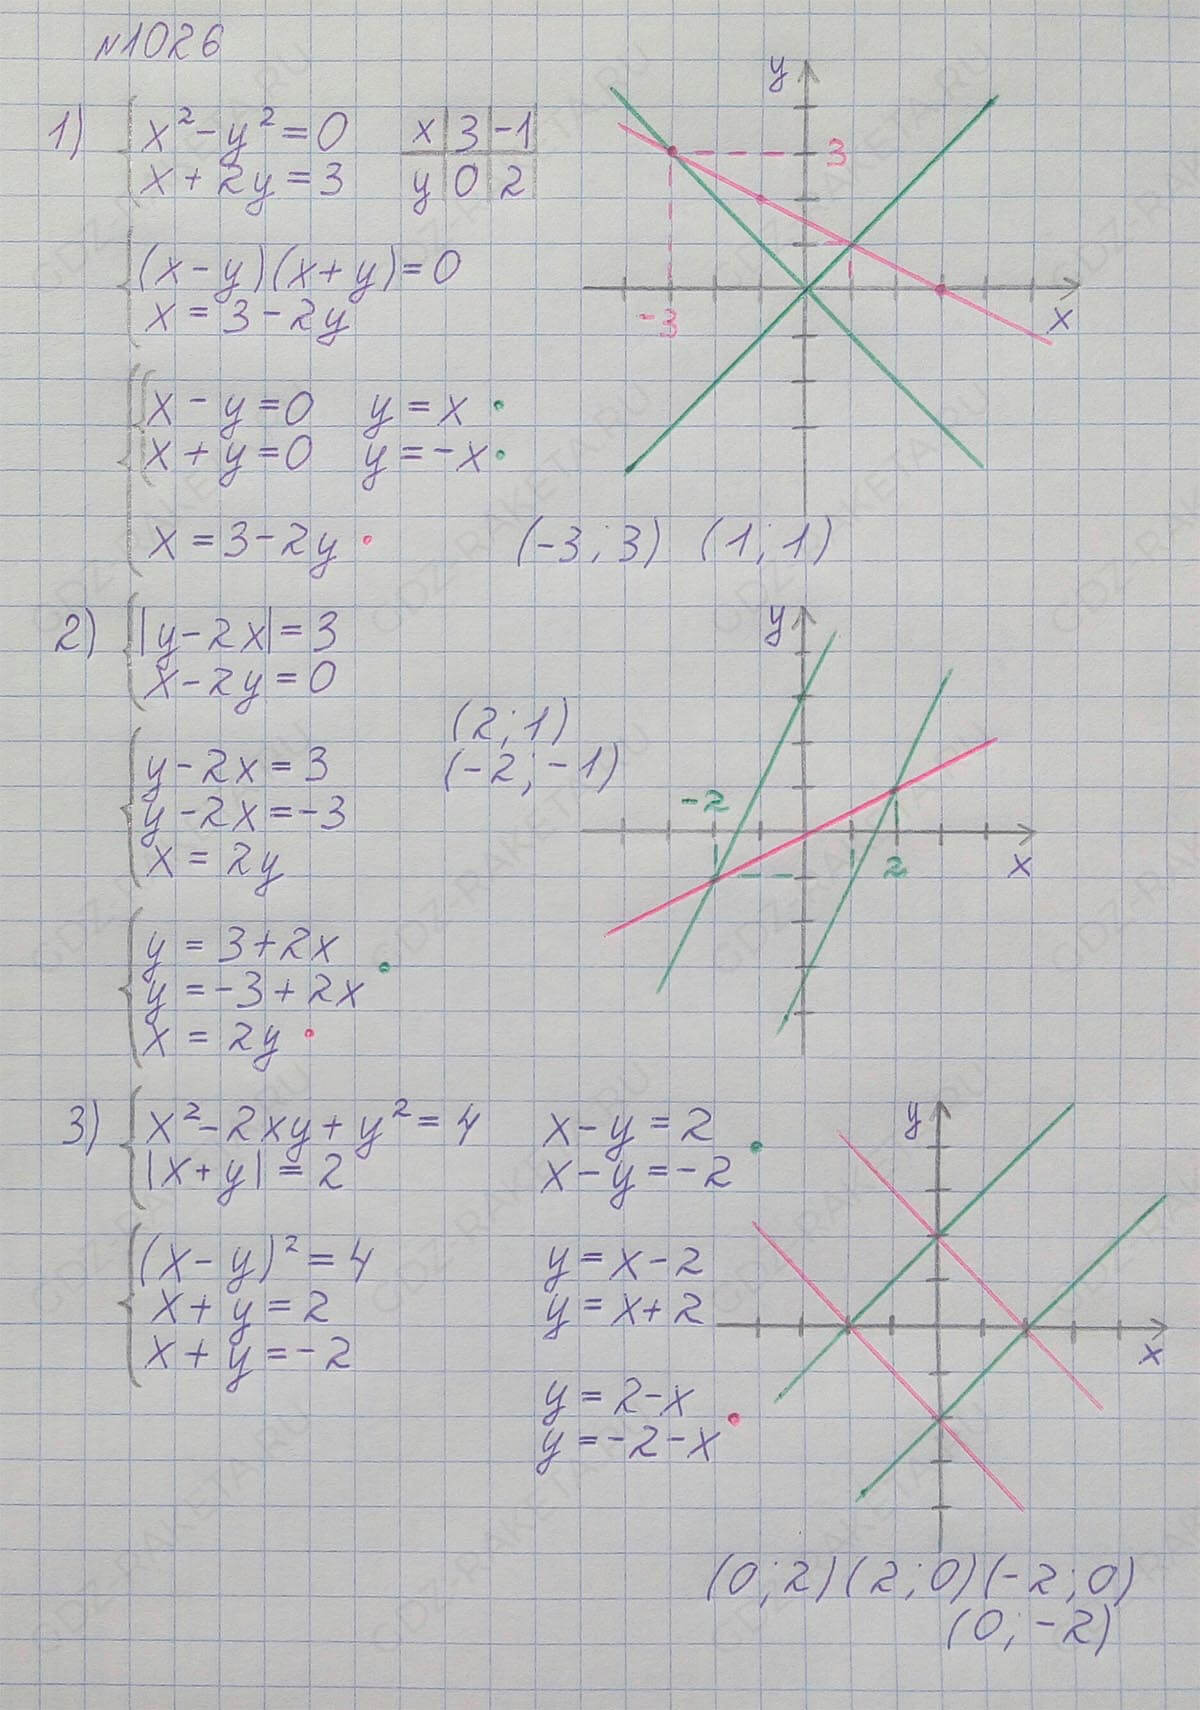 №1026
1) x² - y² = 0
x + 2y = 3
x 3 -1
y 0 2
(x - y)(x + y) = 0
x = 3 - 2y
x - y = 0 y = x
x + y = 0 y = -x
x = 3 - 2y
(-3; 3) (1; 1)
y
3
-3
x
2) |y - 2x| = 3
x - 2y = 0
(2; 1)
(-2; -1)
y - 2x = 3
y - 2x = -3
x = 2y
y = 3 + 2x
y = -3 + 2x
x = 2y
y
-2
2
x
3) x² - 2xy + y² = 4
|x + y| = 2
(x - y)² = 4
x + y = 2
x + y = -2
x - y = 2
x - y = -2
y = x - 2
y = x + 2
y = 2 - x
y = -2 - x
y
x
(0; 2) (2; 0) (-2; 0)
(0; -2)
GDZ-RAKETA.RU